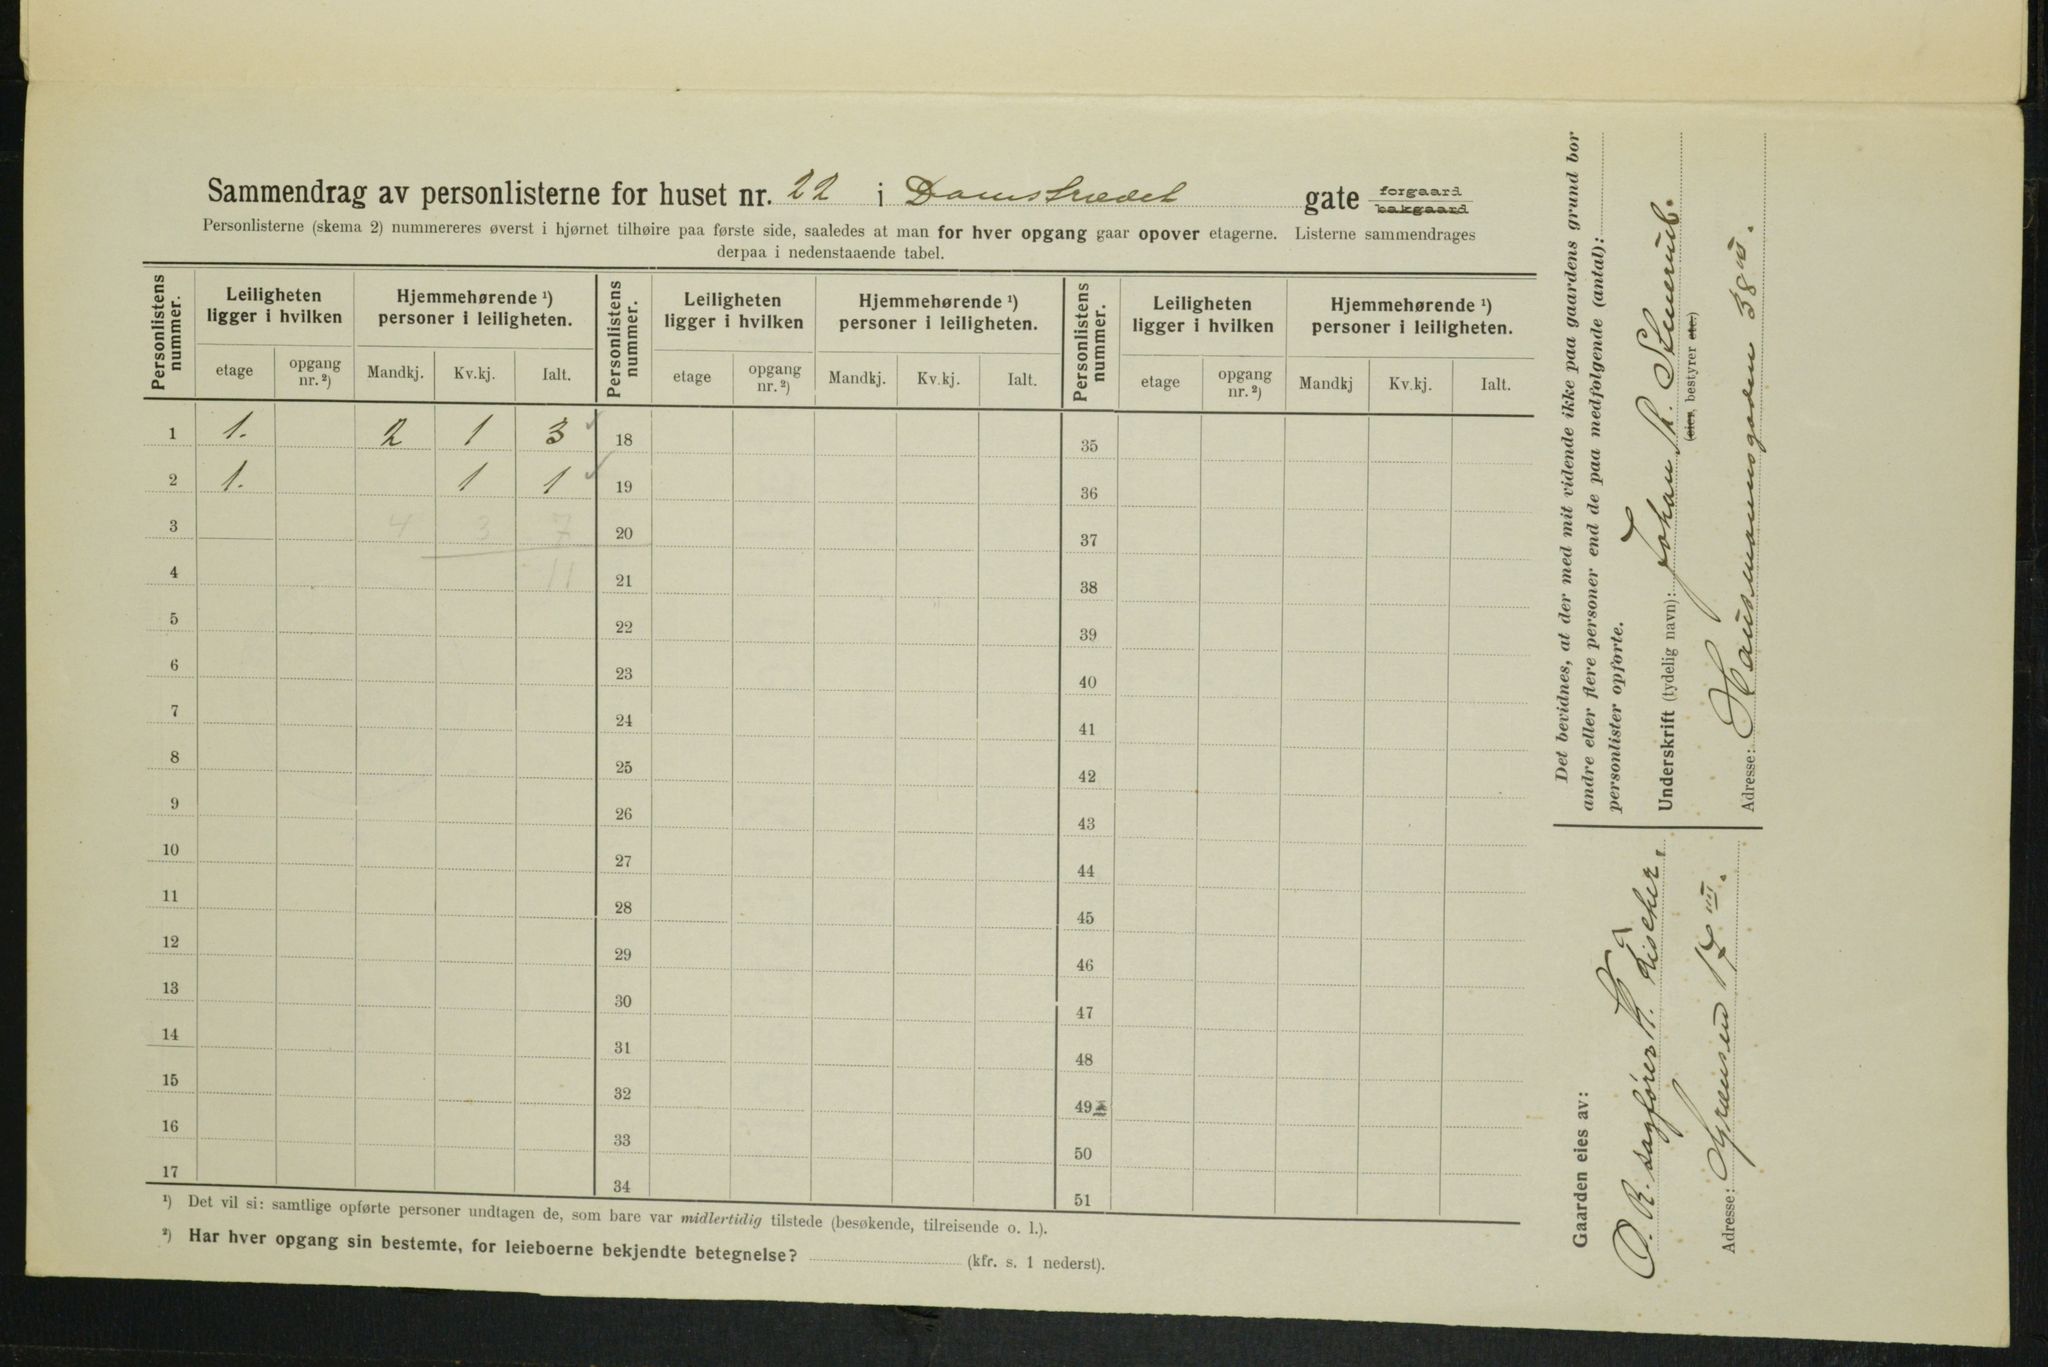 Sammendrag av personlisterne for huset nr. 22 i Damstrædet gate forgaard
bakgaard
Personlisterne (skema 2) nummereres øverst i hjørnet tilhøire paa første side, saaledes at man for hver opgang gaar opover etagerne. Listerne sammendrages
derpaa i nedenstaaende tabel.
Personlistens nummer. Leiligheten ligger i hvilken Hjemmehørende ¹) personer i leiligheten. Personlistens nummer. Leiligheten ligger i hvilken Hjemmehørende ¹) personer i leiligheten. Personlistens nummer. Leiligheten ligger i hvilken Hjemmehørende ¹) personer i leiligheten.
etage opgang nr. ²) Mandkj. Kv.kj. Ialt. etage opgang nr. ²) Mandkj. Kv.kj. Ialt. etage opgang nr. ²) Mandkj Kv.kj. Ialt.
1 1. 2 1 3 18 35
2 1. 1 1 19 36
3 4 3 7 20 37
4 11 21 38
5 22 39
6 23 40
7 24 41
8 25 42
9 26 43
10 27 44
11 28 45
12 29 46
13 30 47
14 31 48
15 32 49
16 33 50
17 34 51
¹) Det vil si: samtlige opførte personer undtagen de, som bare var midlertidig tilstede (besøkende, tilreisende o. l.).
²) Har hver opgang sin bestemte, for leieboerne bekjendte betegnelse? (kfr. s. 1 nederst).
Det bevidnes, at der med mit vidende ikke paa gaardens grund bor
andre eller flere personer end de paa medfølgende (antal):
personlister opførte.
Underskrift (tydelig navn): Johan
(eier, bestyrer etc.)
Adresse: Hausmannsgaden 38 III.
Gaarden eies av:
O. R. sagfører
Adresse: Grænsen 17 III.